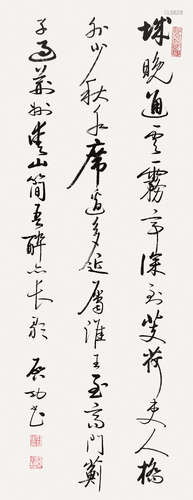 城晚通雲霧亭深到芰荷吏人橋
外少秋水席邊多近屬淮王至高門薊
子過荊州愛山簡吾醉亦長歌 启功書